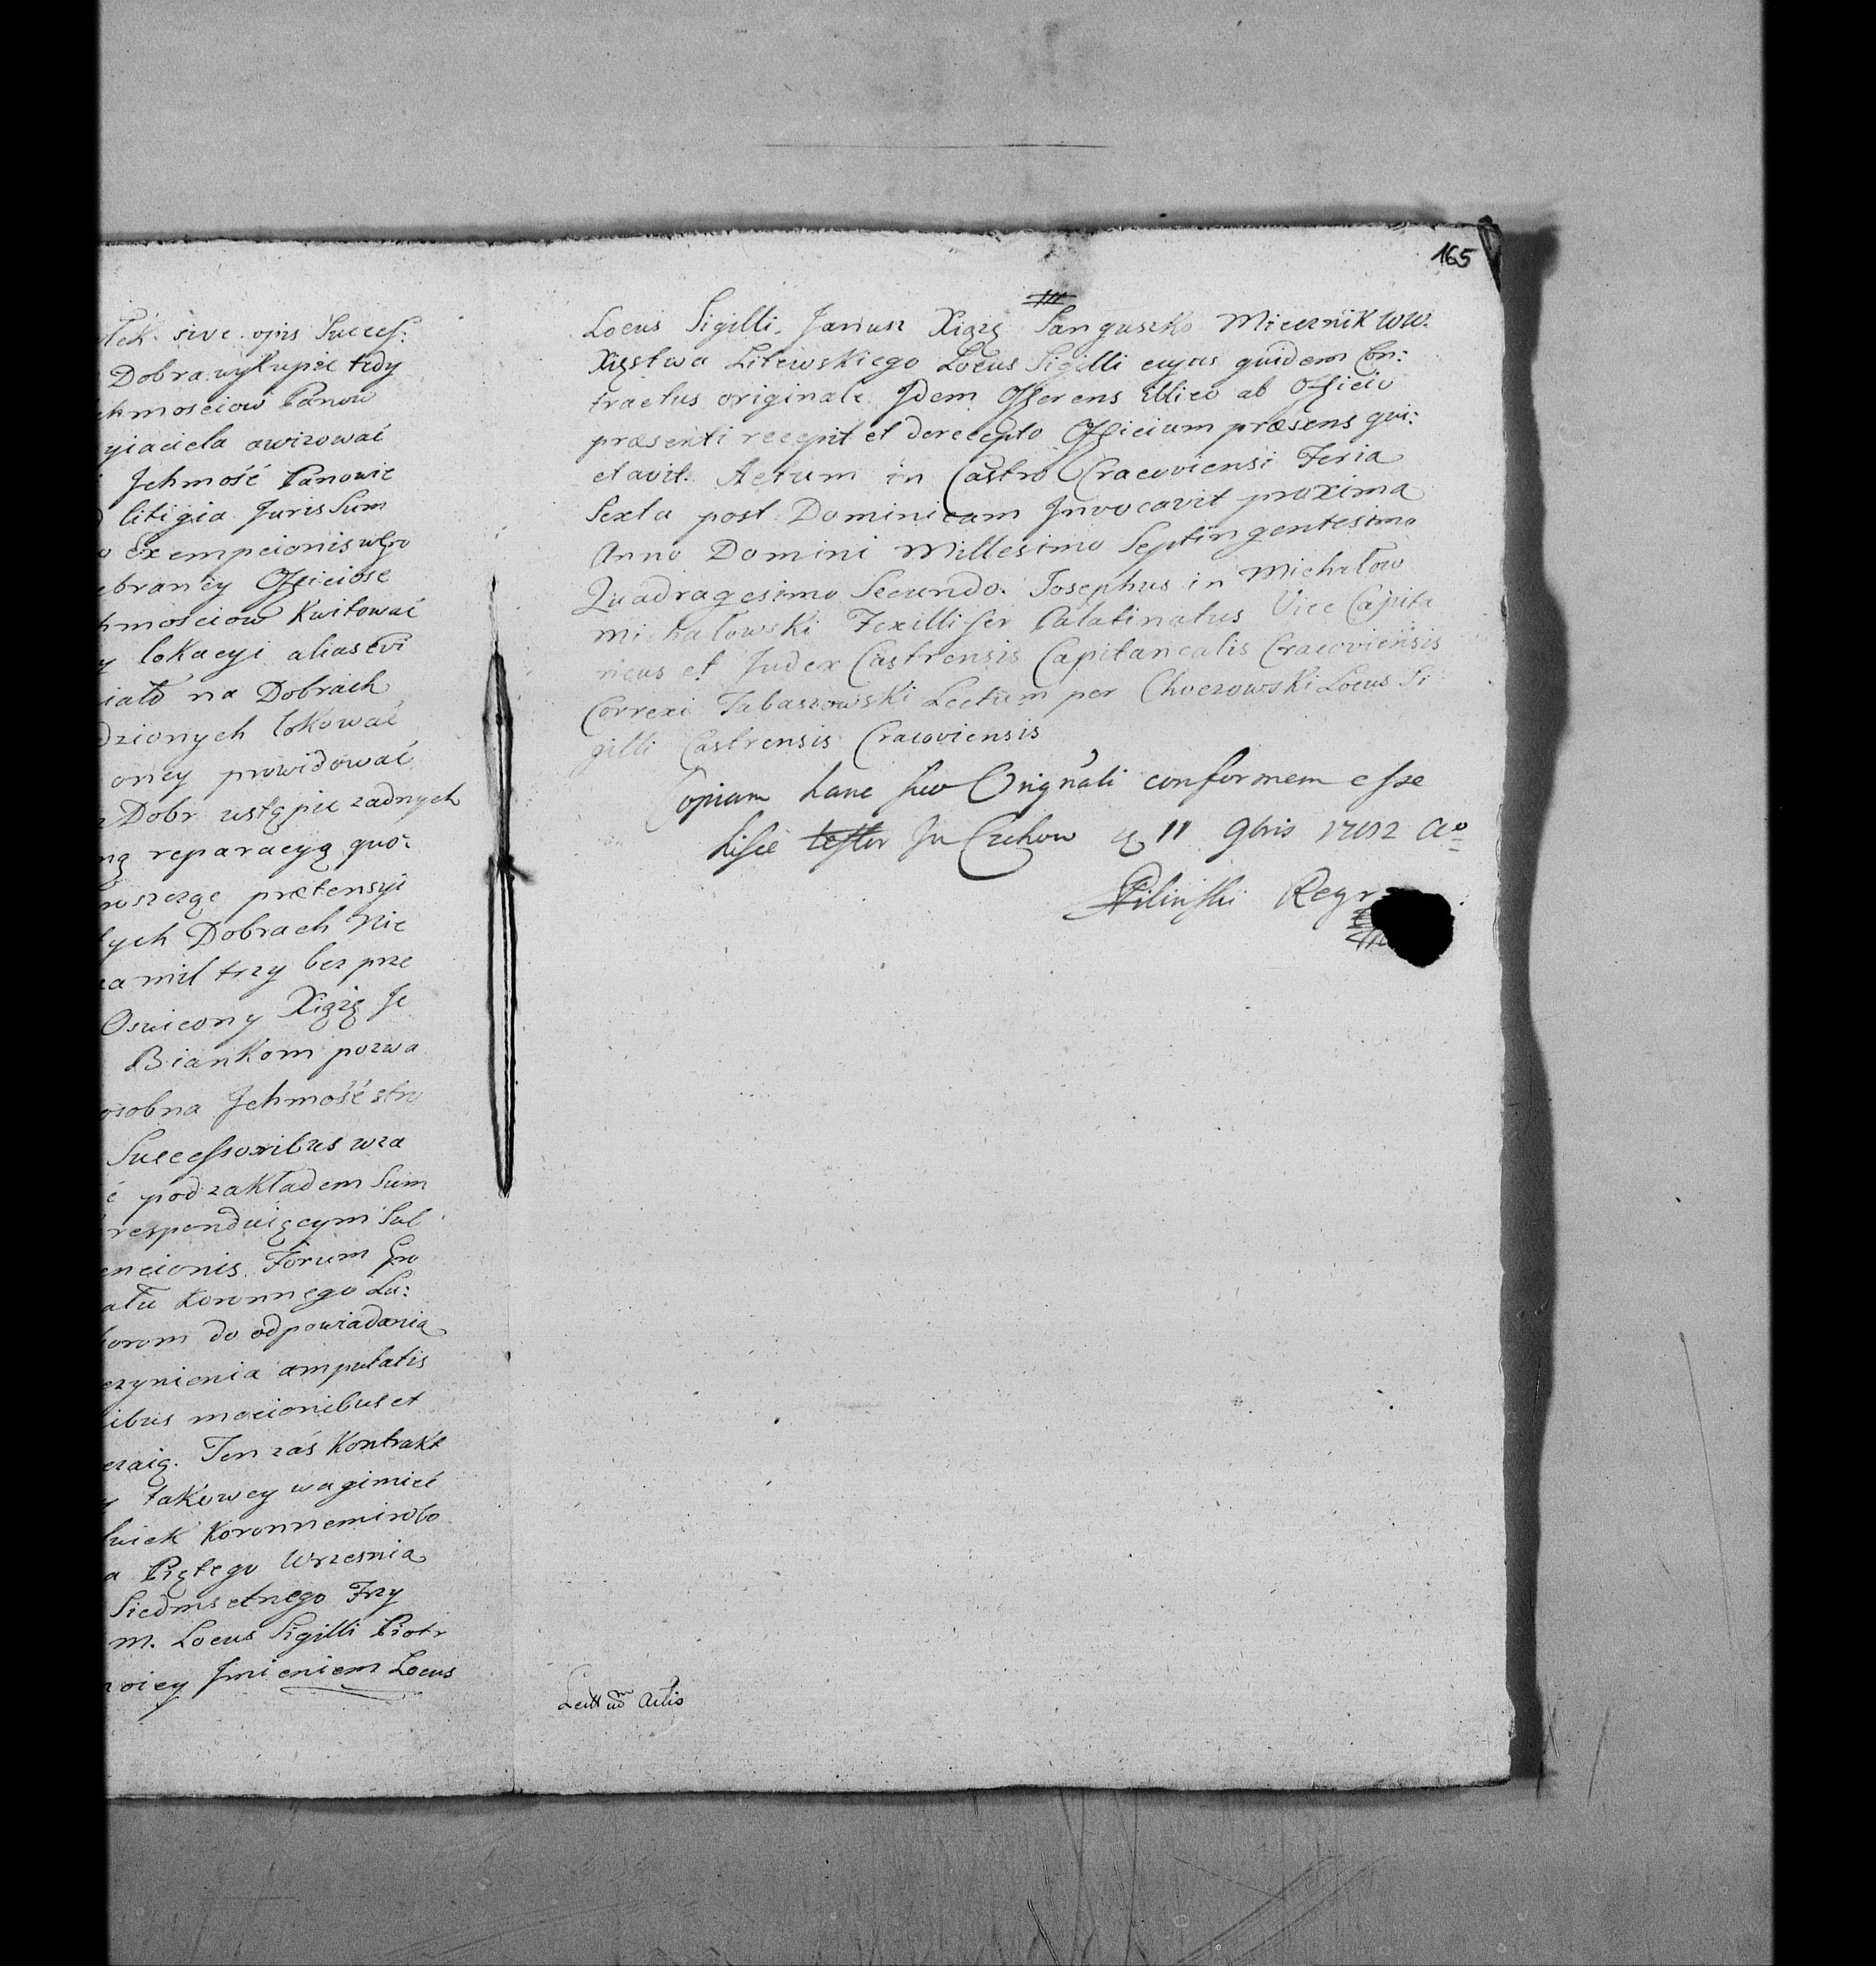 tek. sive. ojus Success:
Dobra wykupić tedy
chmosciow Panow
yiaciela awizować
Jchmość Panowie
litigia Juris Sum
Exempcionis wGro
ebraney Officiose
hmosciow Kwitować
y lokacyi alias Evi
iako na Dobrach
dzionych lokować
oney prowidować
Dobr ustąpić zadnych
ną reparacyą quo:
noszącę prætensyi
tych Dobrach Nie
za mil trzy bez prze
Oswiecony Xiążę Je
Biankom pozwa
osobna Jchmość stro
Successoribus wza
ć pod zakładem Sum
respondwiącym Sub
encionis. Forum Gro
ału Koronnego Lu:
orom do odpowiadania
czynienia amputatis
ibus mocionibus et
czaią. Ten zaś Kontrakt
y takowey wagi mieć
lwiek Koronnemi robo
a Piątego Wrzesnia
Siedmsetnego Trzy
m. Locus Sigilli Piotr
woiey Jmieniem Locus
165
Locus Sigilli. Janusz Xiążę Sanguszko Miecznik WW.
Xięstwa Litewskiego Locus Sigilli cujus quidem Con:
tractus originale Jdem Offerens illico ab Officio
præsenti recepit et de recepto Officium præsens qui:
etavit. Actum in Castro Cracoviensi Feria
Sexta post Dominicam Jnvocavit proxima
Anno Domini Millesimo Septingentesimo
Quadragesimo Secundo. Josephus in Michałow
Michałowski Vexillifer Palatinatus Vice Capita
neus et Judex Castrensis Capitanealis Cracoviensis
Correxi Tabaszowski Lectum per Chwerowski Locus Si
gilli Castrensis Cracoviensis
Copiam hanc suo Orignali conformem esse
hisce testor Jn Czchow 11 9bris 1782 Ao
Piliński Regr
Lectt um Actis